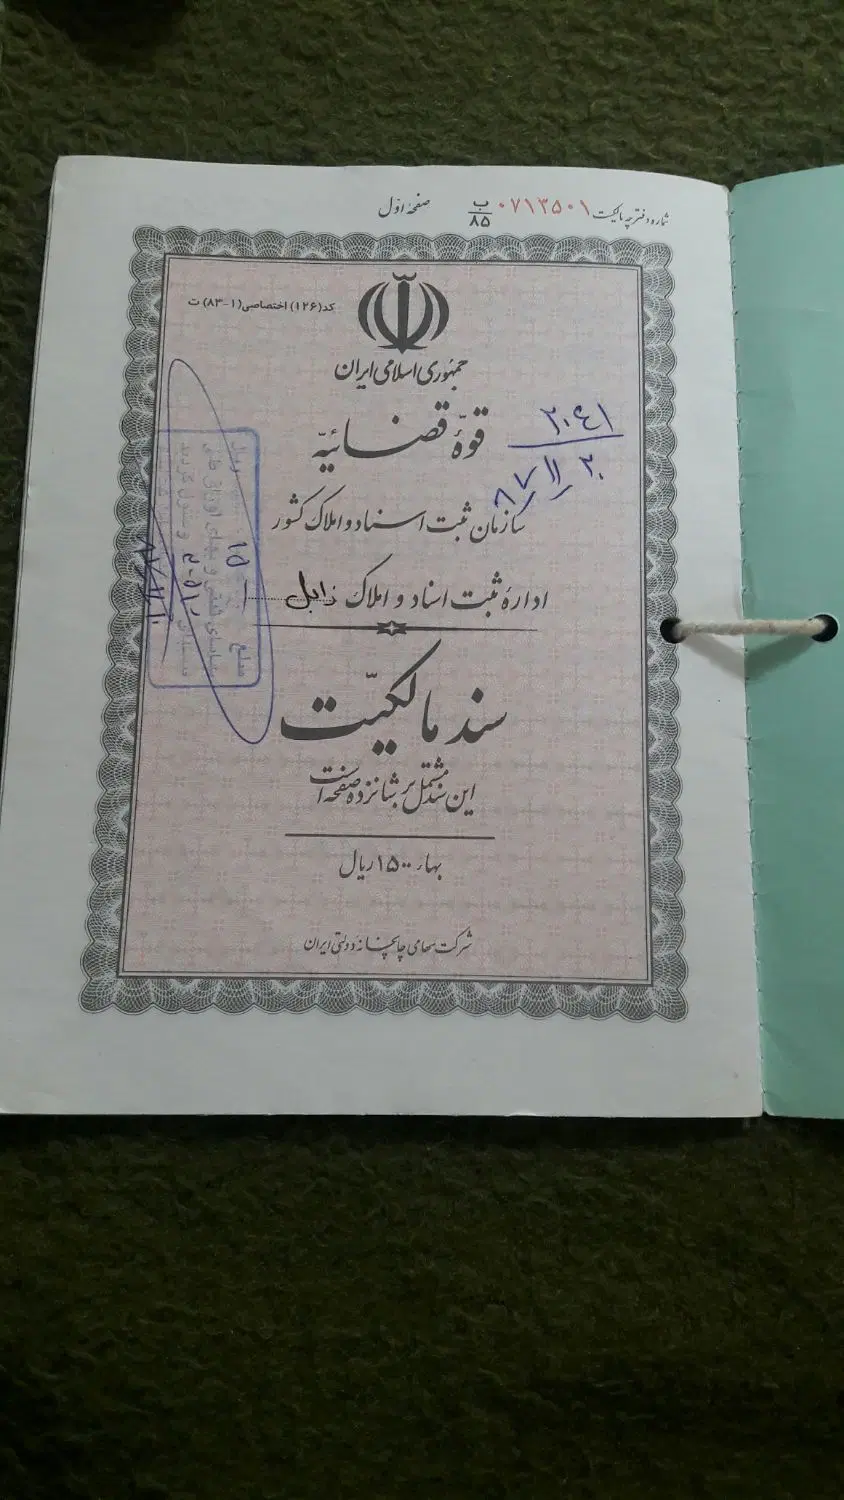 شماره دفترچه مالکیت ۰۷۱۳۵۰۱ ب/۸۵ صفحه اول
کد(۱۲۶) اختصاصی(۱-۸۳) ت
جمهوری اسلامی ایران
۲۰۴۱
قوّهٔ قضائیّه
۸۷/۱۱/۲۰
سازمان ثبت اسناد و املاک کشور
ادارهٔ ثبت اسناد و املاک زابل
سند مالکیّت
این سند مشتمل بر شانزده صفحه است
بهاء ۱۵۰۰ ریال
شرکت سهامی چاپخانه دولتی ایران
مبلغ ۱۵۰۰ ریال